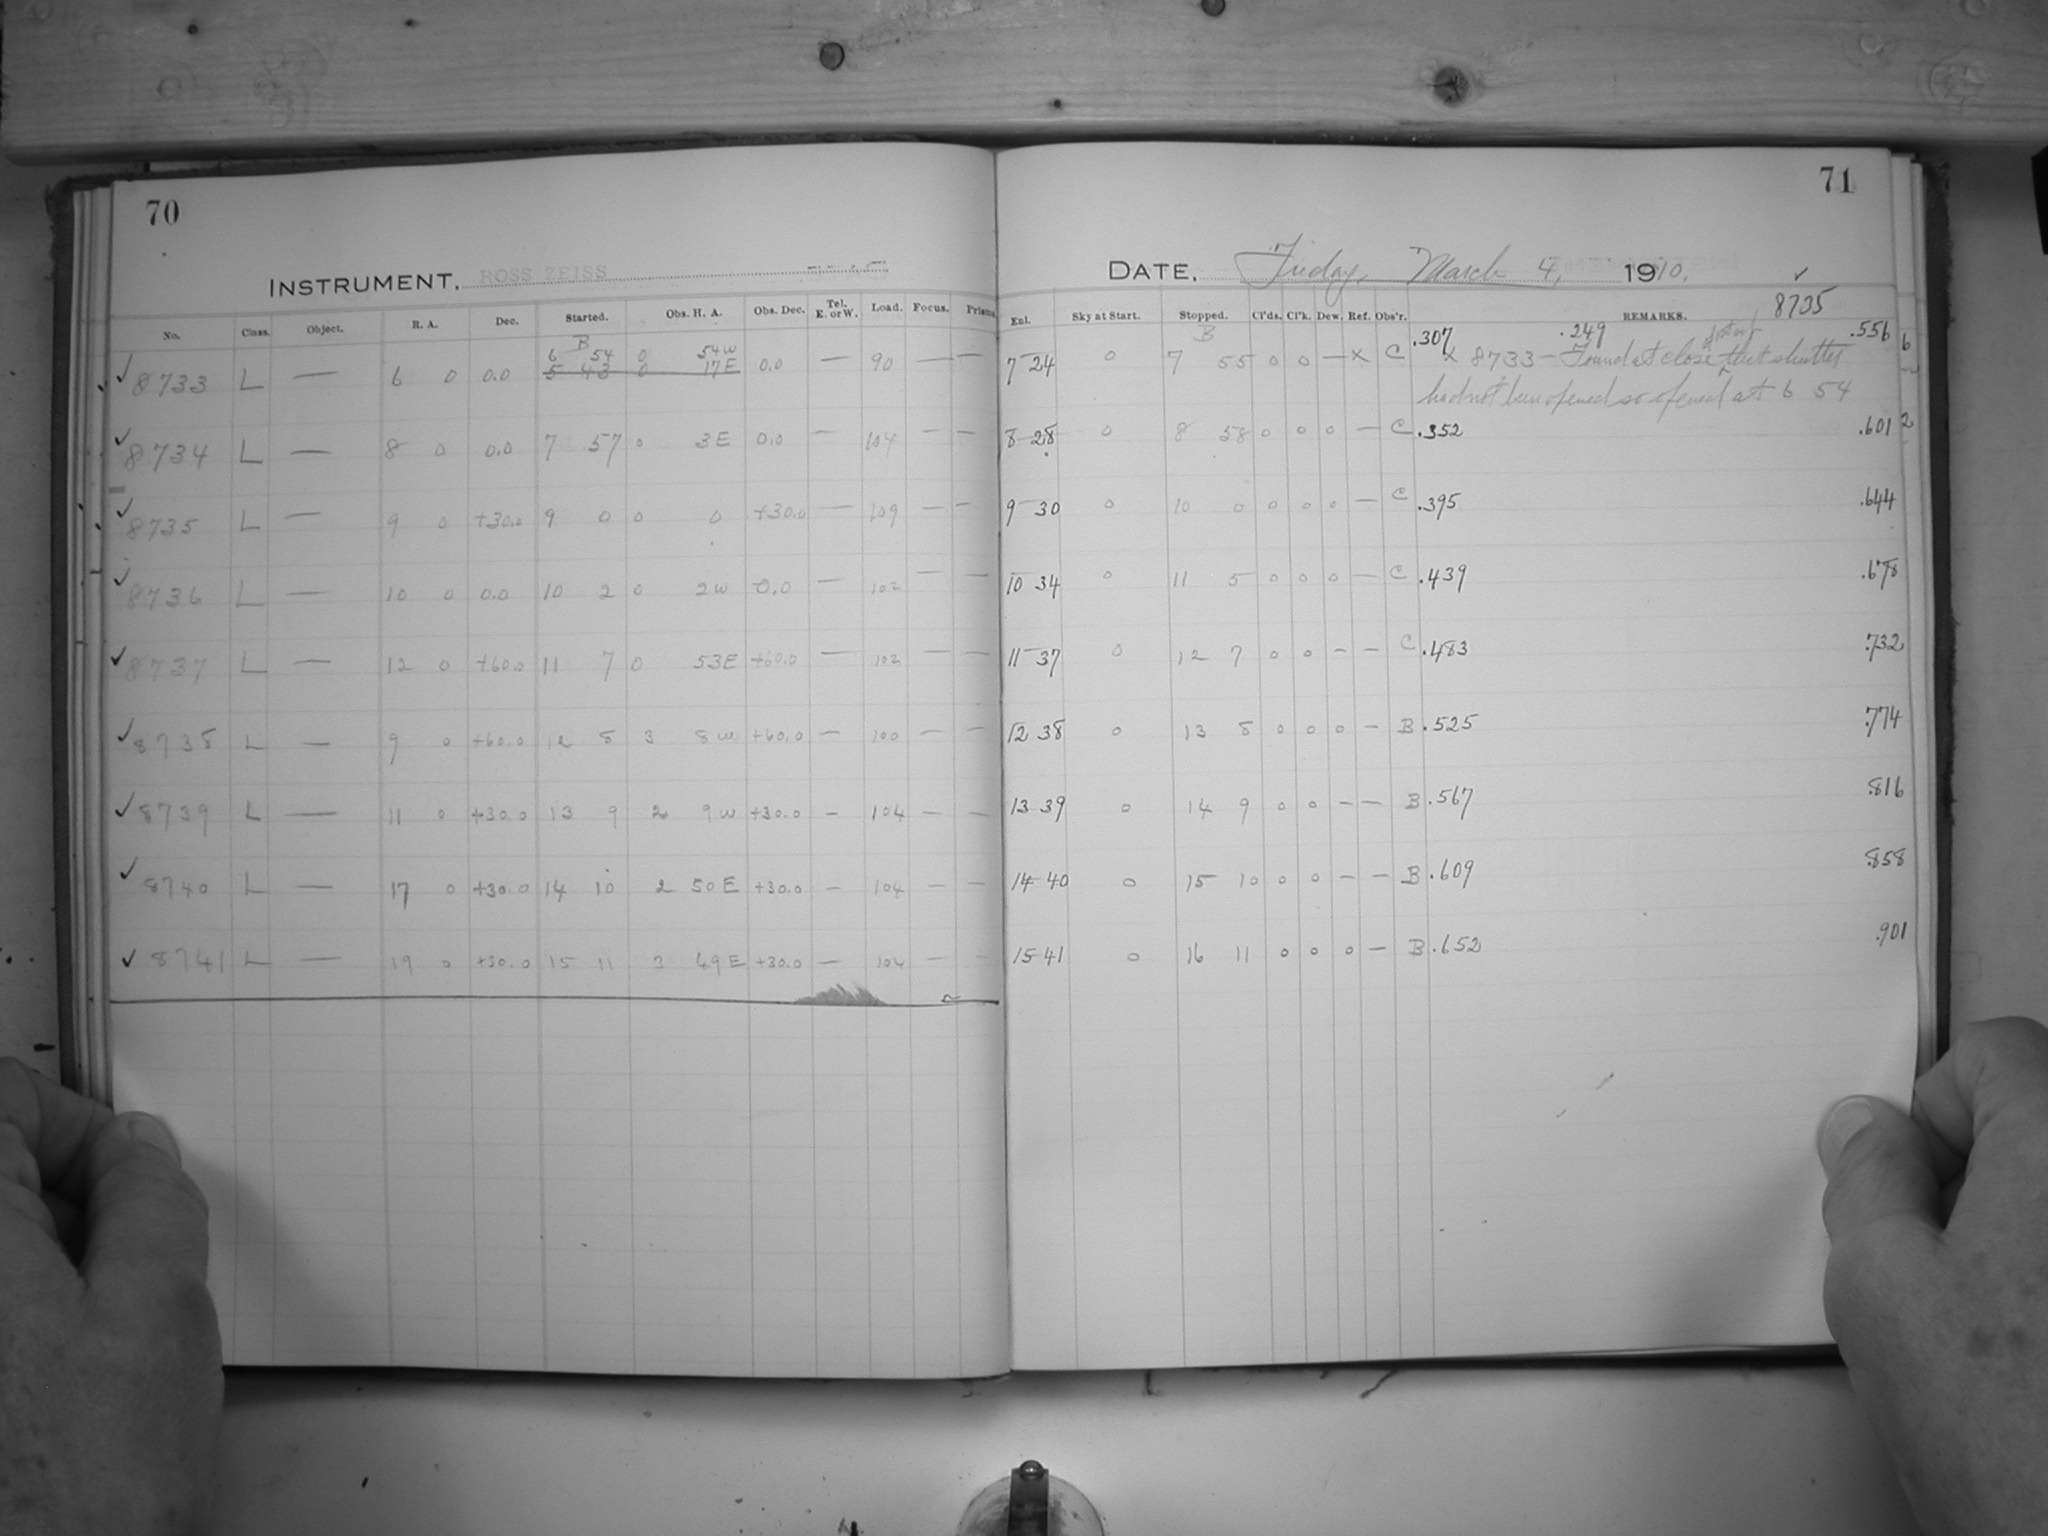 70
INSTRUMENT, ROSS ZEISS
No. Class. Object. R. A. Dec. Started. Obs. H. A. Obs. Dec. Tel. E. or W. Load. Focus. Prisms.
B
6 54 0 54 W
✓ 8733 L — 6 0 0.0 5 43 0 17 E 0.0 — 90 — —
✓ 8734 L — 8 0 0.0 7 57 0 3 E 0.0 — 104 — —
✓ 8735 L — 9 0 +30.0 9 0 0 0 +30.0 — 109 — —
✓ 8736 L — 10 0 0.0 10 2 0 2 W 0.0 — 102 — —
✓ 8737 L — 12 0 +60.0 11 7 0 53 E +60.0 — 102 — —
✓ 8738 L — 9 0 +60.0 12 8 3 8 W +60.0 — 100 — —
✓ 8739 L — 11 0 +30.0 13 9 2 9 W +30.0 — 104 — —
✓ 8740 L — 17 0 +30.0 14 10 2 50 E +30.0 — 104 — —
✓ 8741 L — 19 0 +30.0 15 11 3 49 E +30.0 — 104 — —
71
DATE, Friday, March 4, 1910. ✓
8735
Enl. Sky at Start. Stopped. Cl'ds. Cl'k. Dew. Ref. Obs'r. REMARKS.
B .307 .249 .556
7 24 0 7 55 0 0 — X C X 8733 — Found at close that shutter
had not been opened so opened at 6 54
8 28 0 8 58 0 0 0 — C .352 .601
9 30 0 10 0 0 0 0 — C .395 .644
10 34 0 11 5 0 0 0 — C .439 .678
11 37 0 12 7 0 0 — — C .483 .732
12 38 0 13 8 0 0 0 — B .525 .774
13 39 0 14 9 0 0 — — B .567 .816
14 40 0 15 10 0 0 — — B .609 .858
15 41 0 16 11 0 0 0 — B .652 .901